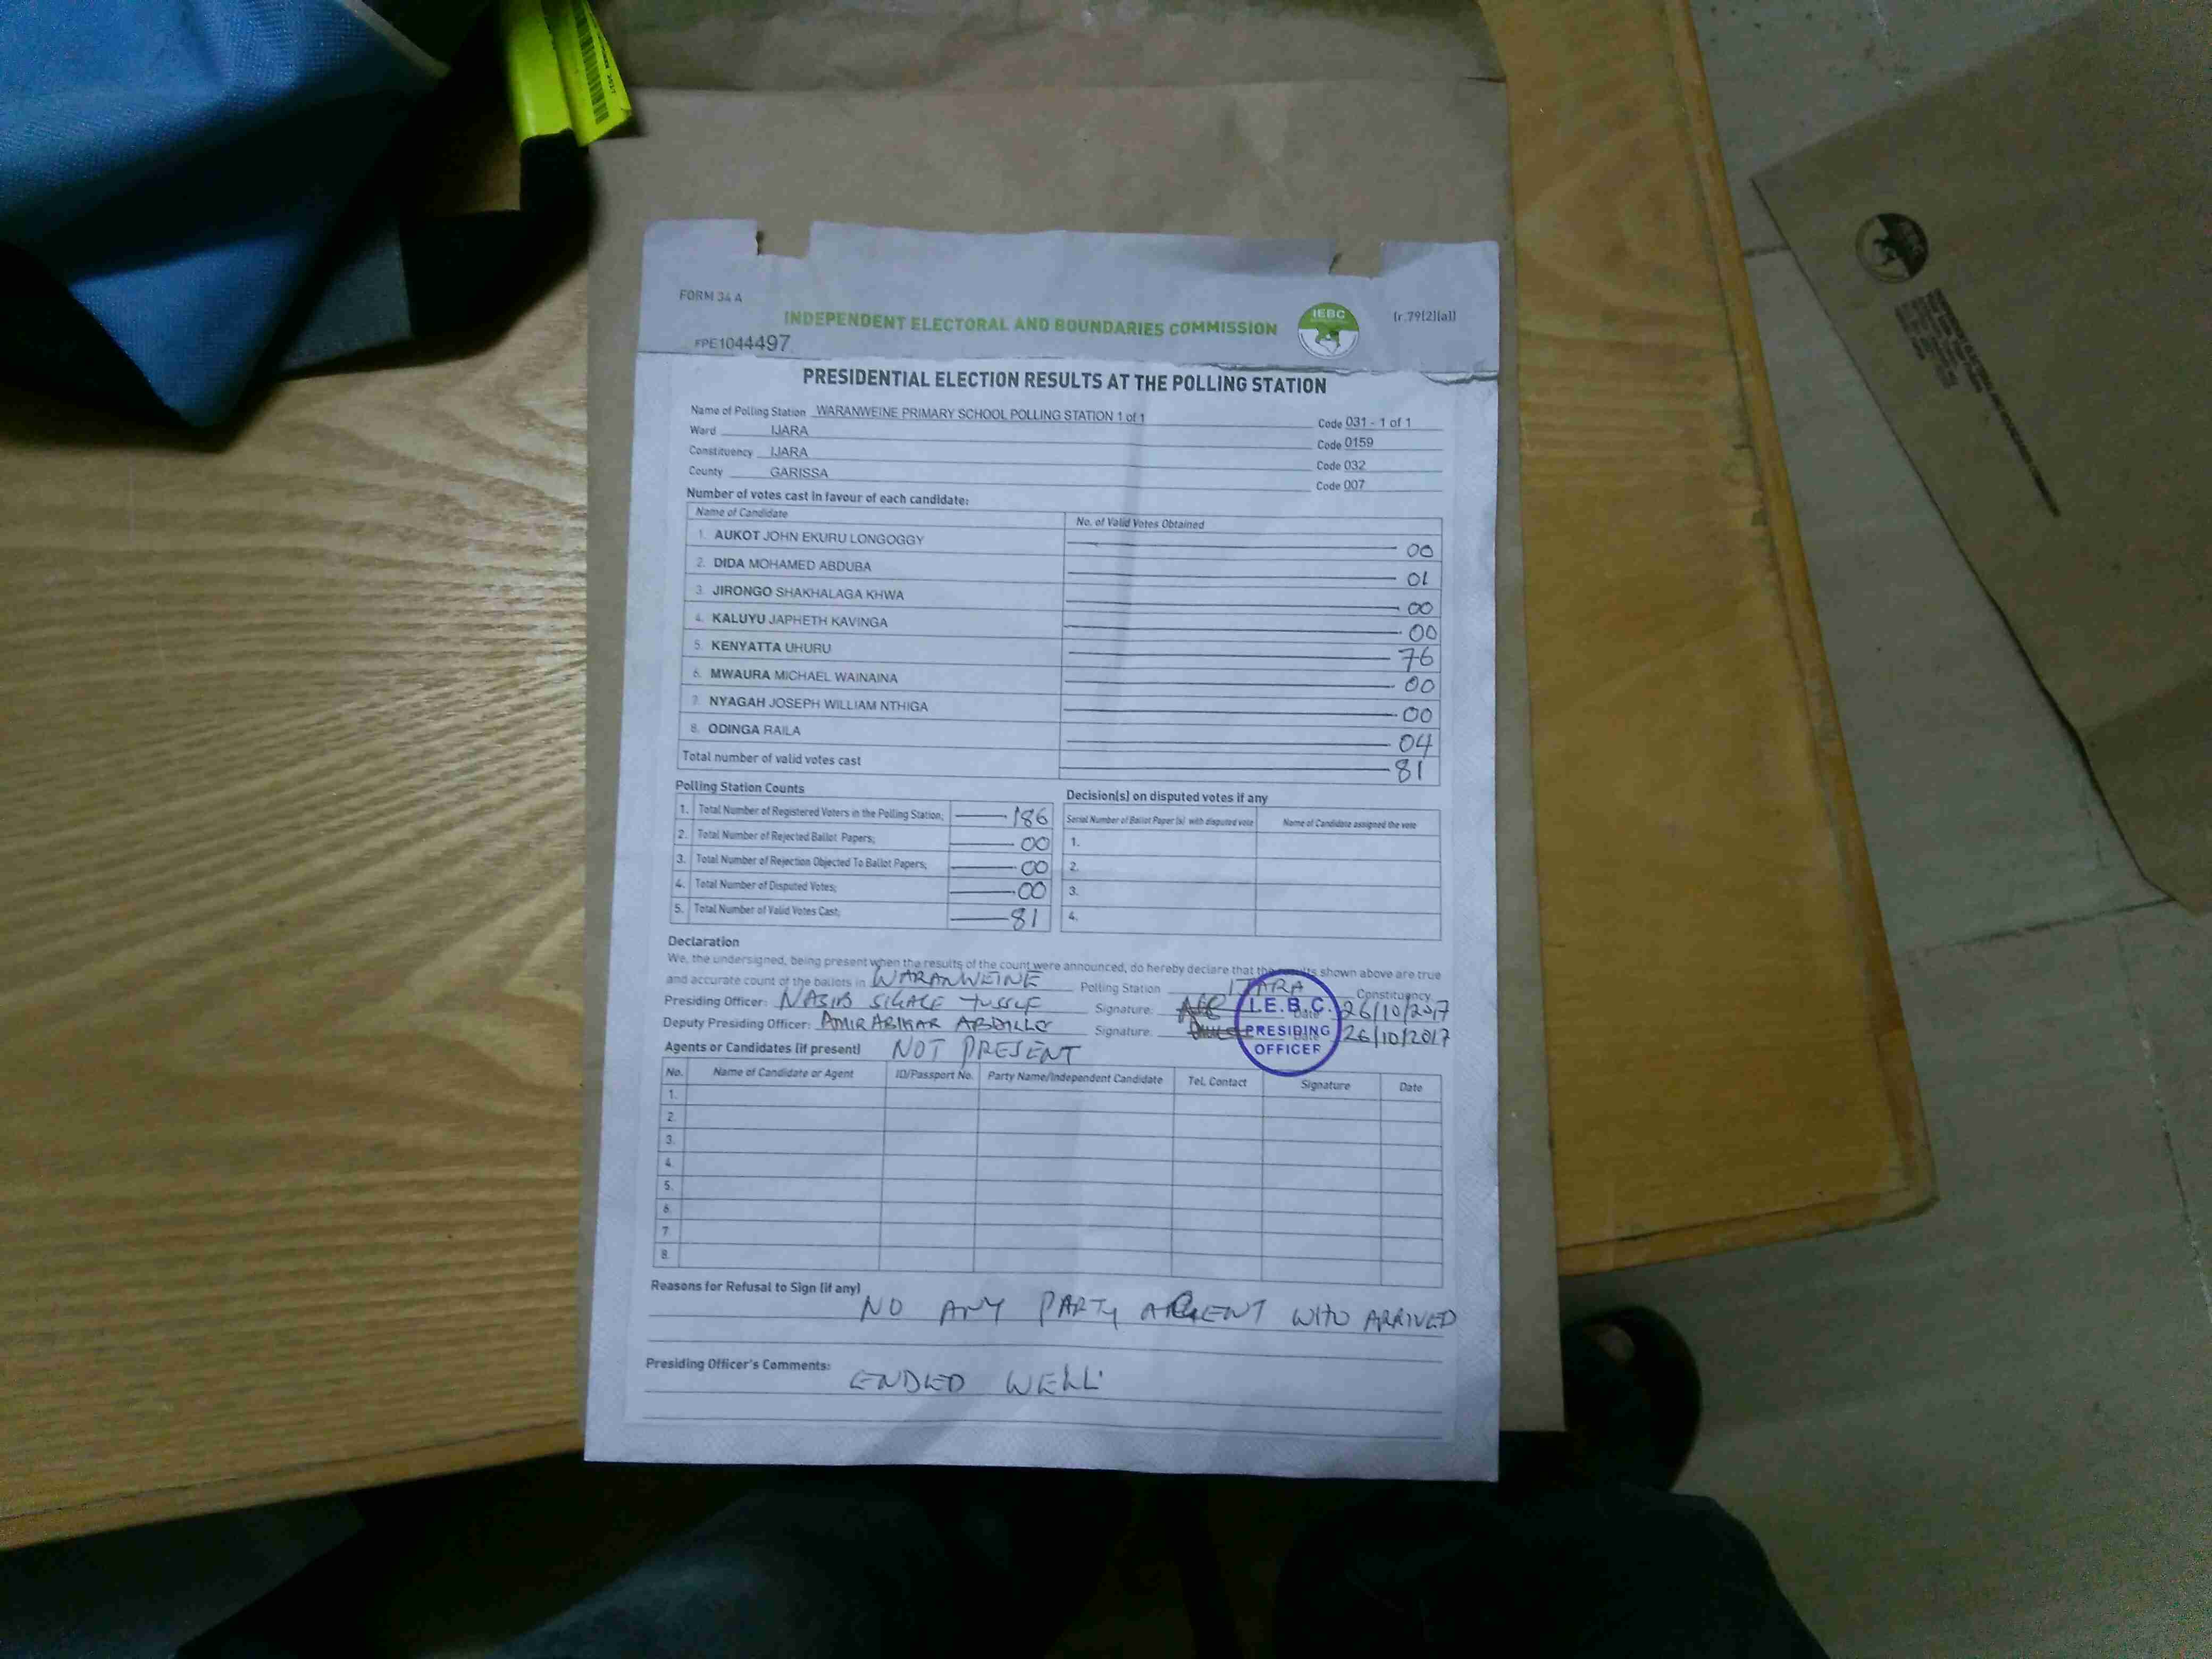 FORM 34 A
(r.79(2)(a))
INDEPENDENT ELECTORAL AND BOUNDARIES COMMISSION
IEBC
FPE1044497
PRESIDENTIAL ELECTION RESULTS AT THE POLLING STATION
Name of Polling Station WARANWEINE PRIMARY SCHOOL POLLING STATION 1 of 1 Code 031 - 1 of 1
Ward IJARA Code 0159
Constituency IJARA Code 032
County GARISSA Code 007
Number of votes cast in favour of each candidate:
Name of Candidate No. of Valid Votes Obtained
1. AUKOT JOHN EKURU LONGOGGY 00
2. DIDA MOHAMED ABDUBA 01
3. JIRONGO SHAKHALAGA KHWA 00
4. KALUYU JAPHETH KAVINGA 00
5. KENYATTA UHURU 76
6. MWAURA MICHAEL WAINAINA 00
7. NYAGAH JOSEPH WILLIAM NTHIGA 00
8. ODINGA RAILA 04
Total number of valid votes cast 81
Polling Station Counts
1. Total Number of Registered Voters in the Polling Station; 186
2. Total Number of Rejected Ballot Papers; 00
3. Total Number of Rejection Objected To Ballot Papers; 00
4. Total Number of Disputed Votes; 00
5. Total Number of Valid Votes Cast; 81
Decision(s) on disputed votes if any
Serial Number of Ballot Paper (s) with disputed vote Name of Candidate assigned the vote
1.
2.
3.
4.
Declaration
We, the undersigned, being present when the results of the count were announced, do hereby declare that the results shown above are true
and accurate count of the ballots in WARANWEINE Polling Station IJARA Constituency
Presiding Officer: NASIB Signature: Date 26/10/2017
Deputy Presiding Officer: AMIR ABIKAR ABDILLE Signature: Date 26/10/2017
I.E.B.C.
PRESIDING
OFFICER
Agents or Candidates (if present) NOT PRESENT
No. Name of Candidate or Agent ID/Passport No. Party Name/Independent Candidate Tel. Contact Signature Date
1.
2.
3.
4.
5.
6.
7.
8.
Reasons for Refusal to Sign (if any)
NO ANY PARTY AGENT WHO ARRIVED
Presiding Officer's Comments:
ENDED WELL